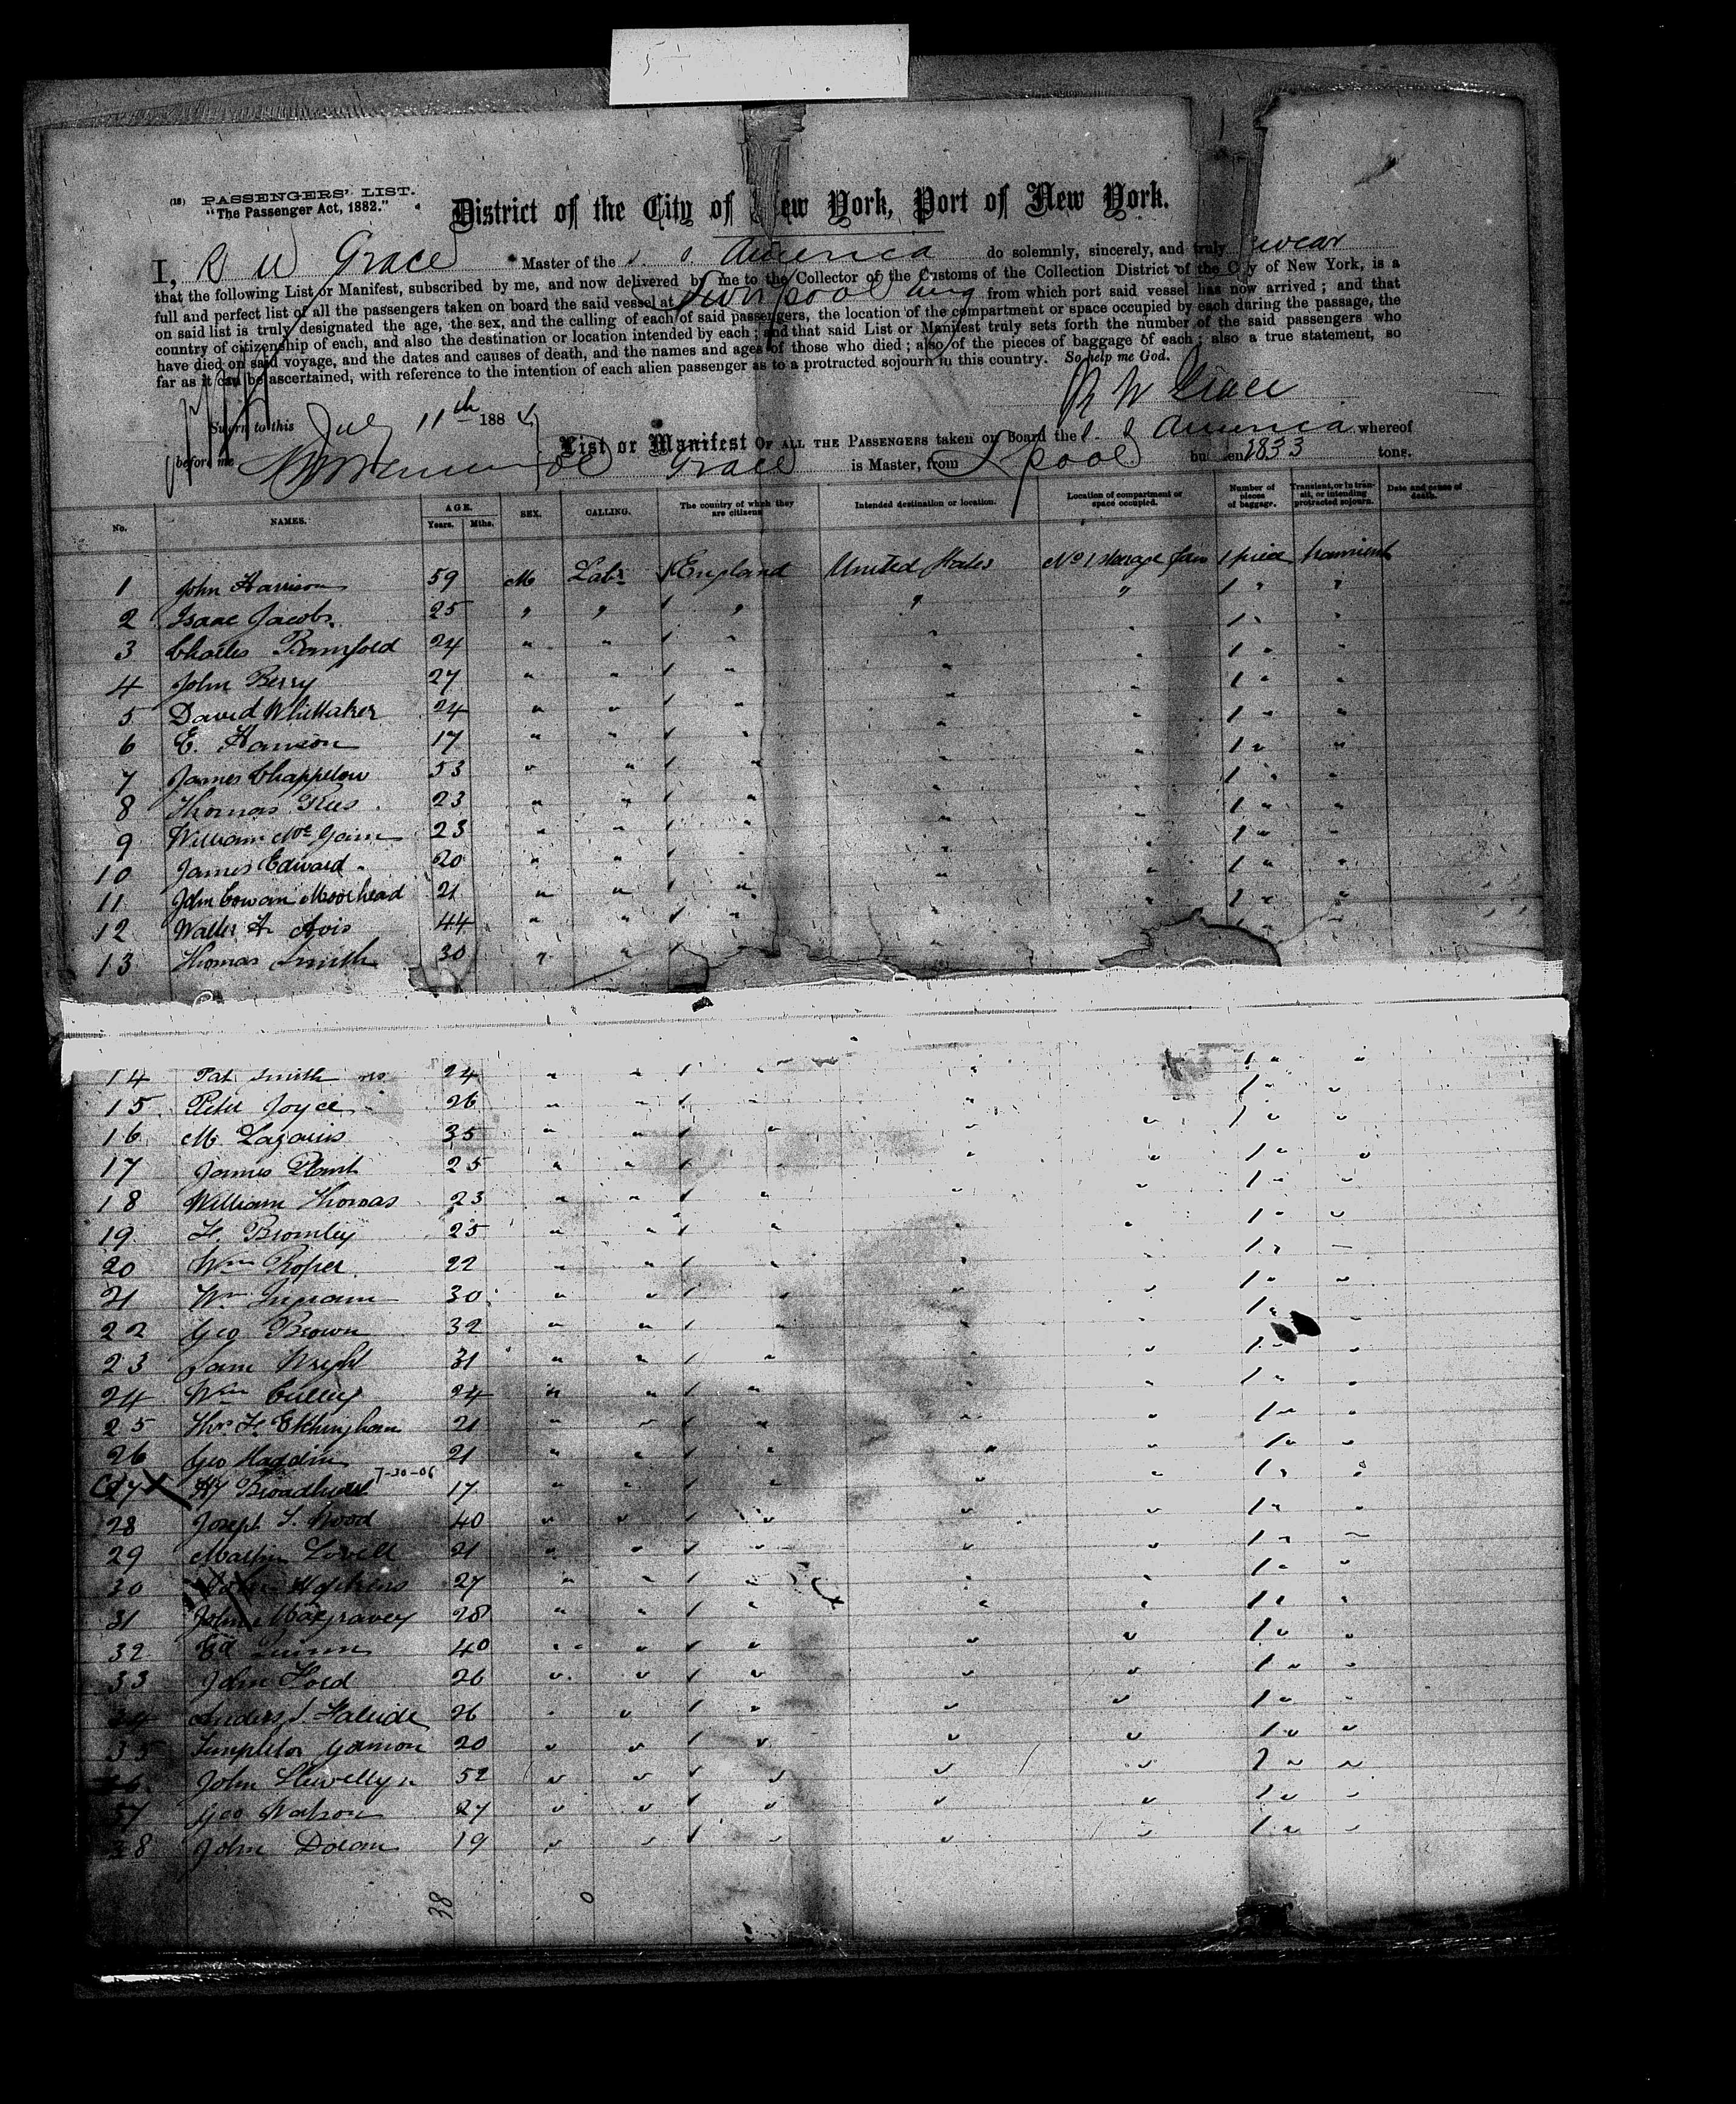 (18) PASSENGERS' LIST.
"The Passenger Act, 1882."
District of the City of New York, Port of New York.
I, R W Grace Master of the S. S. America do solemnly, sincerely, and truly swear
that the following List or Manifest, subscribed by me, and now delivered by me to the Collector of the Customs of the Collection District of the City of New York, is a
full and perfect list of all the passengers taken on board the said vessel at Liverpool Eng from which port said vessel has now arrived ; and that
on said list is truly designated the age, the sex, and the calling of each of said passengers, the location of the compartment or space occupied by each during the passage, the
country of citizenship of each, and also the destination or location intended by each ; and that said List or Manifest truly sets forth the number of the said passengers who
have died on said voyage, and the dates and causes of death, and the names and ages of those who died ; also of the pieces of baggage of each ; also a true statement, so
far as it can be ascertained, with reference to the intention of each alien passenger as to a protracted sojourn in this country. So help me God.
R W Grace
Sworn to this July 11th 1884
before me
List or Manifest OF ALL THE PASSENGERS taken on board the S. S America whereof
Grace is Master, from Lpool burthen 1833 tons.
No. NAMES. AGE. Years. Mths. SEX. CALLING. The country of which they are citizens Intended destination or location. Location of compartment or space occupied. Number of pieces of baggage. Transient, or in transit, or intending protracted sojourn. Date and cause of death.
1 John Harrison 59 M Labr England United States No 1 Steerage 1 piece transient
2 Isaac Jacobs 25 " " " " " 1 " "
3 Charles Bamford 24 " " " " " 1 " "
4 John Berry 27 " " " " " 1 " "
5 David Whittaker 24 " " " " " 1 " "
6 E. Hanson 17 " " " " " 1 " "
7 James Chappelow 53 " " " " " 1 " "
8 Thomas Rees 23 " " " " " 1 " "
9 William 23 " " " " " 1 " "
10 James Edward 20 " " " " " 1 " "
11 John Cowan Moorhead 21 " " " " " 1 " "
12 Walter H. Avis 44 " " " 1 " "
13 Thomas Smith 30 " "
14 Pat Smith 24 " " " " 1 " "
15 Peter Joyce 26 " " " " 1 " "
16 M. Lazarus 35 " " " " " 1 " "
17 James Plant 25 " " " " " 1 " "
18 William Thomas 23 " " " " " 1 " "
19 H. Bromley 25 " " " " " 1 " "
20 Wm Roper 22 " " " " 1 " "
21 Wm Ingram 30 " " " " 1 " "
22 Geo Brown 32 " " " " 1 "
23 Sam Wright 31 " " " " " 1 " "
24 Wm Culley 24 " " " " " 1 " "
25 Thos H. Etchingham 21 " " " " " 1 " "
26 Geo Haddin 21 " " " " " 1 " "
27 X Hy Broadhurst 7-30-06 17 " " " " " 1 " "
28 Joseph S. Wood 40 " " " " " 1 " "
29 Martin Lovell 21 " " " " " 1 " "
30 John Hopkins 27 " " " " " 1 " "
31 John Macgravey 28 " " " " " 1 " "
32 Ed Quinn 40 " " " " " 1 " "
33 John Ford 26 " " " " " 1 " "
34 Anders J. 26 " " " " " 1 " "
35 Templeton Gamon 20 " " " " " 1 " "
36 John Llewellyn 52 " " " " " 2 " "
37 Geo Watson 27 " " " " " 1 " "
38 John Doran 19 " " " " " 1 " "
38 0